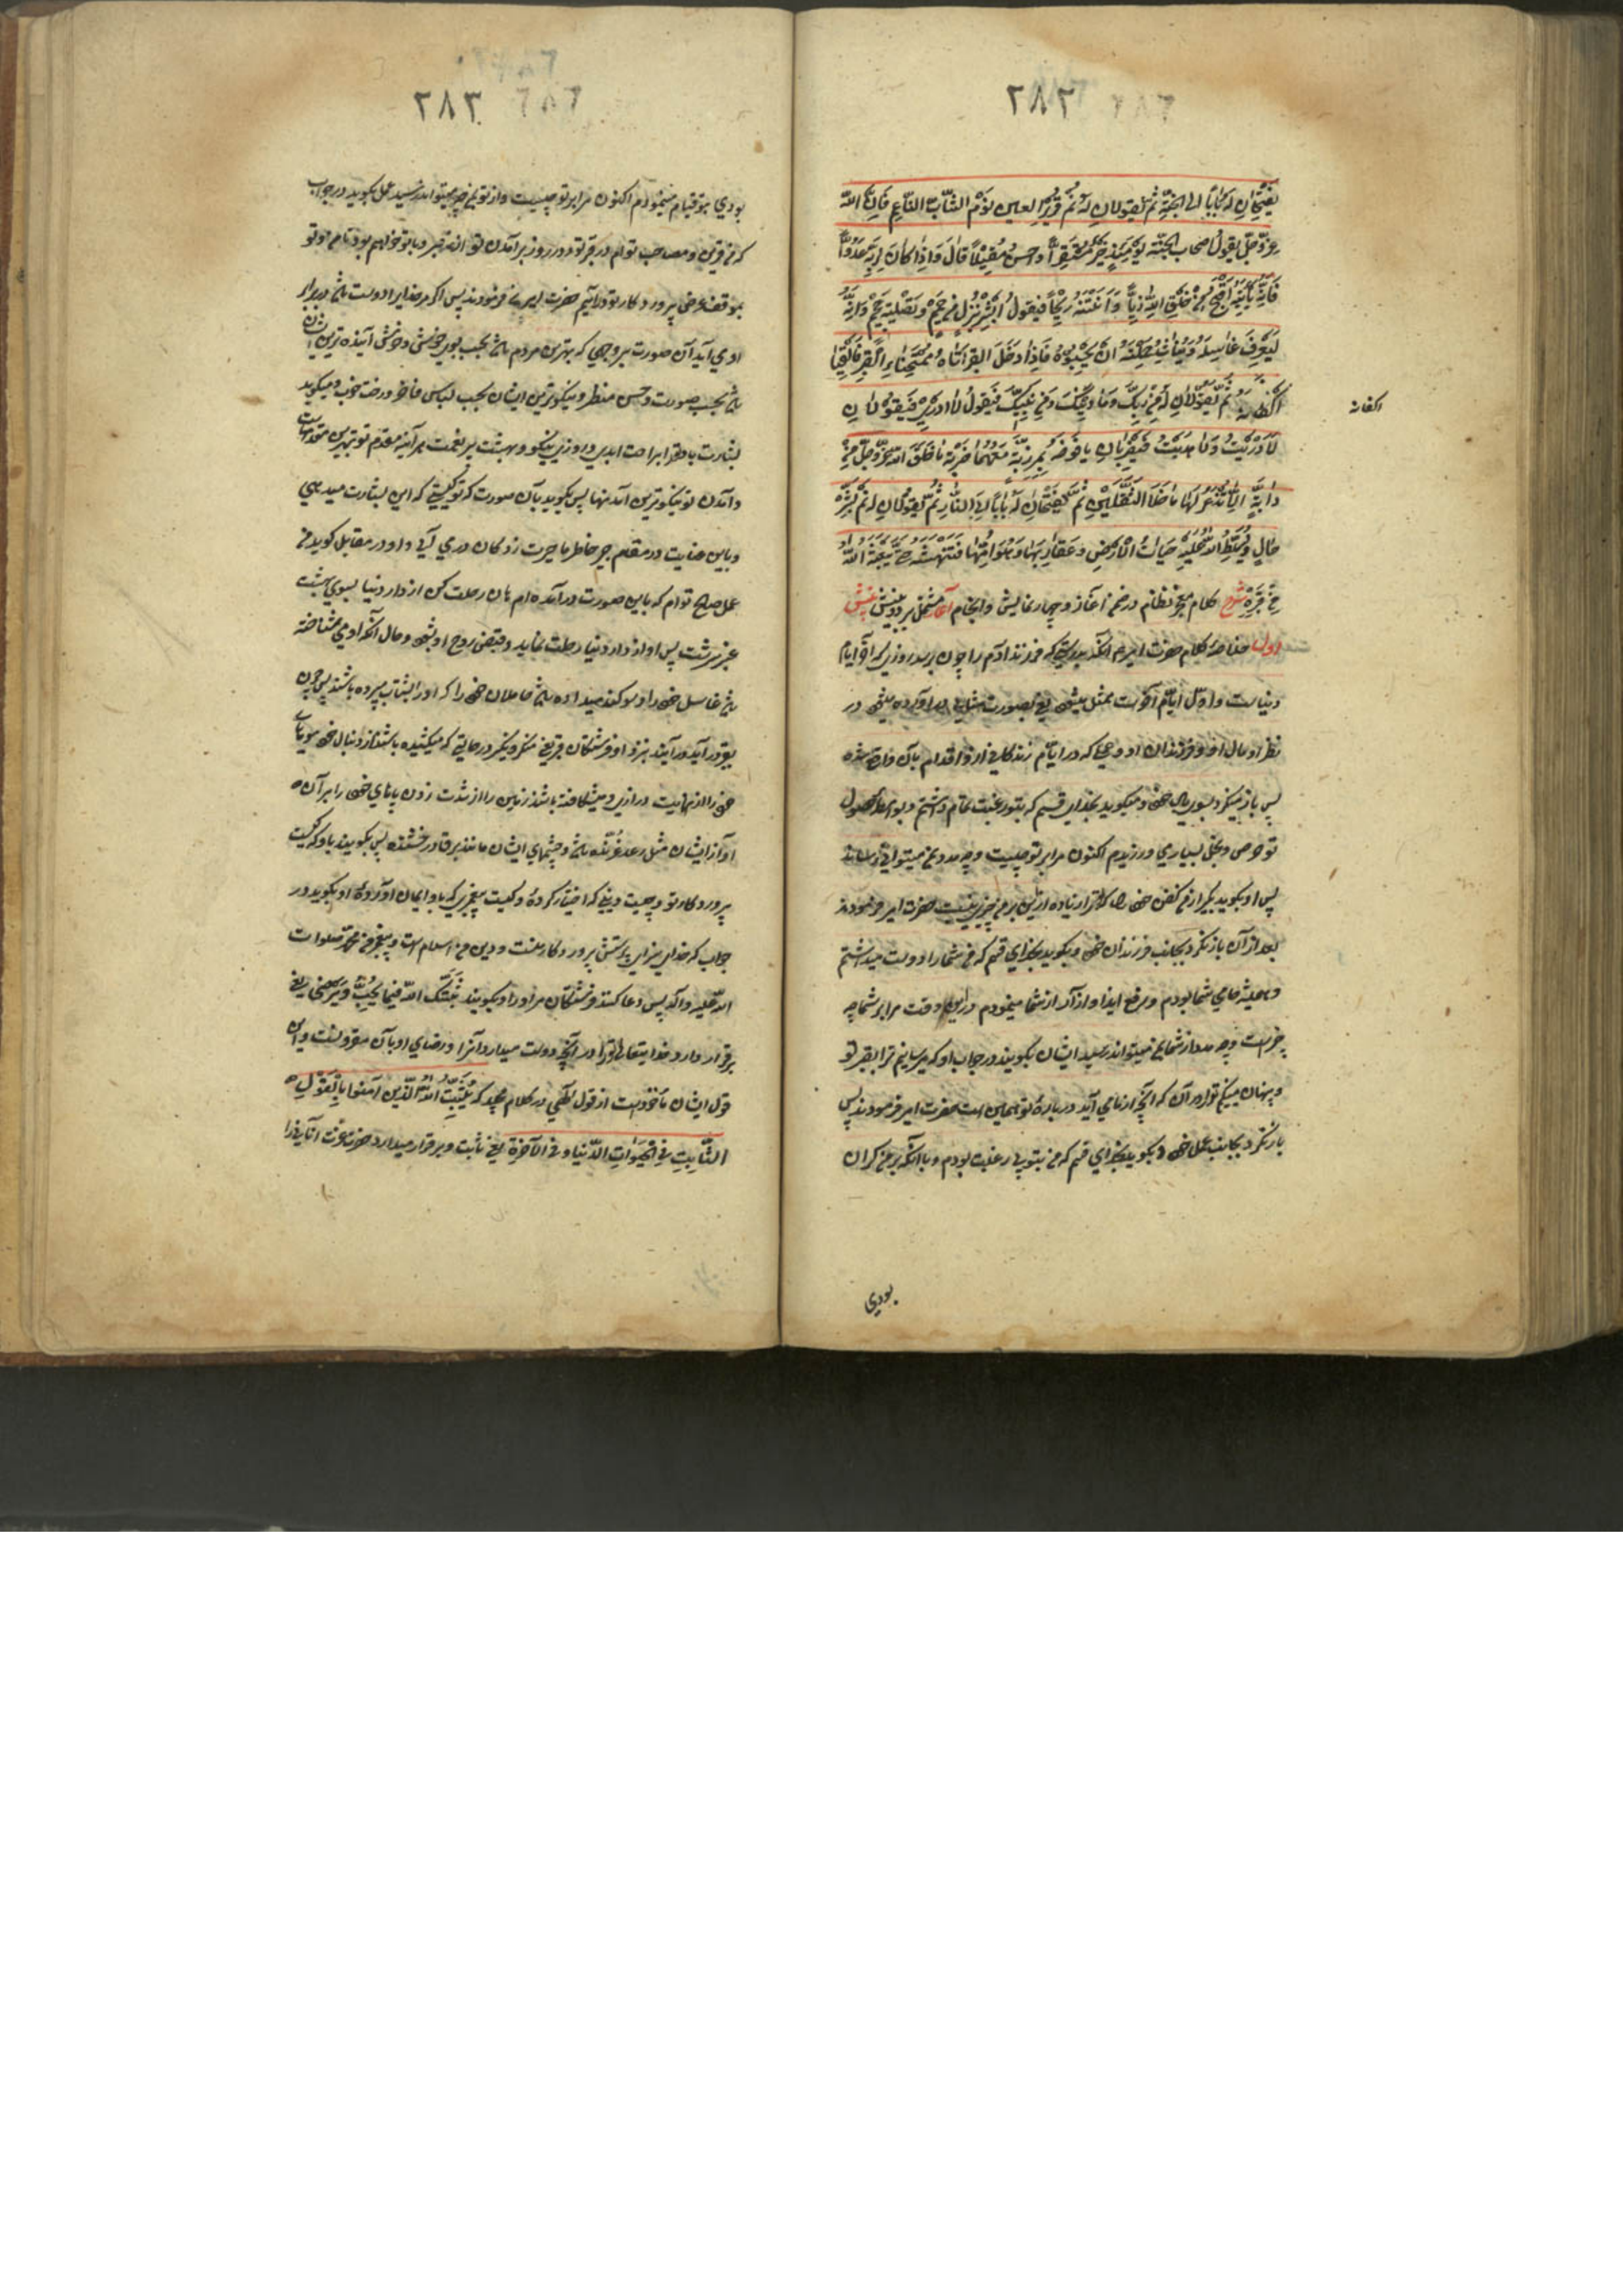 ۲۸۲
یفتحان له بابا الی الجنّة ثم یقولان له نم قریر العین نوم الشاب الناعم فان الله
عزّ وجلّ یقول اصحاب الجنّة یومئذ خیر مستقرّا و احسن مقیلا قال و اذا کان لربه عدوّا
فانّه یأتیه اقبح خلق الله زیّا و انتنه ریحا فیقول ابشر بنزل من حمیم و تصلیة جحیم و انّه
لیعرف غاسله و یناشد حملته ان یحبسوه فاذا دخل القبر اتاه ممتحنا القبر فالقیا
اکفانه ثم یقولان له من ربک و ما دینک و من نبیک فیقول لا ادری فیقولان
اکفانه
لا دریت و لا هدیت فیضربان یافوخه بمرزبّة معهما ضربة ما خلق الله عزّ وجلّ من
دابّة الا تذعر لها ما خلا الثقلین ثم یفتحان له بابا الی النار ثم یقولان له نم بشرّ
حال و یسلّط الله علیه حیات الارض و عقاربها و هوامّها فتنهشه حتی یبعثه الله
من قبره شرح کلام معجز نظام در ضمن آغاز و چهار نمایش و انجام آغاز مشتمل بر دو بینش بینش
اول خلاصۀ کلام حضرت امیر آنکه بدرستی که فرزند آدم را چون برسد روزی که آخر ایام
دنیاست و اول ایام آخرت ممثل میشود یعنی بصورت مثالی در آورده میشود در
نظر او مال او و فرزندان او و عملی که در ایام زندگانی از او اقدام بآن واقع شده
پس باز مینگرد بسوی مال خود و میگوید بخدای قسم که بتو رغبت تمام داشتم و بواسطۀ حصول
تو حرص و بخل بسیاری ورزیدم اکنون مرا بر تو چیست و چه مدد بمن میتوانی رساند
پس او بگوید بگیر از من کفن خود را که ترا زیاده ازین بر من چیزی نیست حضرت امیر فرمودند
بعد از آن باز نگرد بجانب فرزندان خود و بگوید بخدای قسم که من شما را دوست میداشتم
و همیشه حامی شما بودم و رفع ایذا و آزار از شما مینمودم در این وقت مرا بر شما چه
چیز است و چه مدد از شما بمن میتواند رسید ایشان بگویند در جواب او که میرسانیم ترا بقبر تو
و پنهان میکنیم ترا در آن که آنچه از ما می آید در بارۀ تو همین است حضرت امیر فرمودند پس
باز نگرد بجانب عمل خود و بگوید بخدای قسم که من بتو بی رغبت بودم و با آنکه بر من گران
بودی
۲۸۳
بودی بتو قیام مینمودم اکنون مرا بر تو چیست و از تو بمن چه چیز میتواند رسید عمل بگوید در جواب
که من قرین و مصاحب توام در قبر تو و در روز بر آمدن تو از قبر و با تو خواهم بود تا من و تو
بموقف عرض پروردگار تو درآئیم حضرت امیر ع فرمودند پس اگر مر خدا را دوست باشد در برابر
او می آید آن صورت بر وجهی که بهترین مردم باشد بحسب بوی خوش و خوش آینده ترین ایشان
باشد بحسب صورت و حسن منظر و نیکوترین ایشان بحسب لباس فاخر و رخت خوب و میگوید
بشارت باد ترا براحت ابدی و روزی نیکو و بهشت پر نعمت هر آینه مقدم تو بهترین مقدمهاست
و آمدن تو نیکوترین آمدنها پس بگوید بآن صورت که تو کیستی که این بشارت میدهی
و باین عنایت در مقام جبر خاطر ما حیرت زدگان در می آیی و او در مقابل گوید من
عمل صالح توام که باین صورت درآمده ام هان رحلت کن از دار دنیا بسوی بهشت
عنبر سرشت پس او از دار دنیا رحلت نماید و قبض روح او بشود و حال آنکه او می شناخته
باشد غاسل خود را و سوگند میداده باشد حاملان خود را که او را بشتاب میبرده باشند پس چون
بقبر درآید درآیند بنزد او فرشتگان قبر یعنی منکر و نکیر در حالتی که میکشیده باشند از دنبال خود مویهای
خود را از نهایت درازی و میشکافته باشند زمین را از شدت زدن پاهای خود را بر آن
آواز ایشان مثل رعد غرنده باشد و چشمهای ایشان مانند برق درخشنده پس بگویند باو که کیست
پروردگار تو و چیست دینی که اختیار کردۀ و کیست پیغمبری که باو ایمان آوردۀ او بگوید در
جواب که خدای سزای پرستش پروردگار منست و دین من اسلام است و پیغمبر من محمد صلوات
الله علیه و آله پس دعا کنند فرشتگان مر او را و بگویند ثبتک الله فیما یحبّ و یرضی یعنی
برقرار دارد خدایتعالی ترا در آنچه دوست میدارد آنرا و رضای او بآن مقرونست و این
قول ایشان مأخوذست از قول الهی در کلام مجید که یثبّت الله الذین آمنوا بالقول
الثابت فی الحیوة الدنیا و فی الآخرة یعنی ثابت و برقرار میدارد حضرت عزت آنانی را